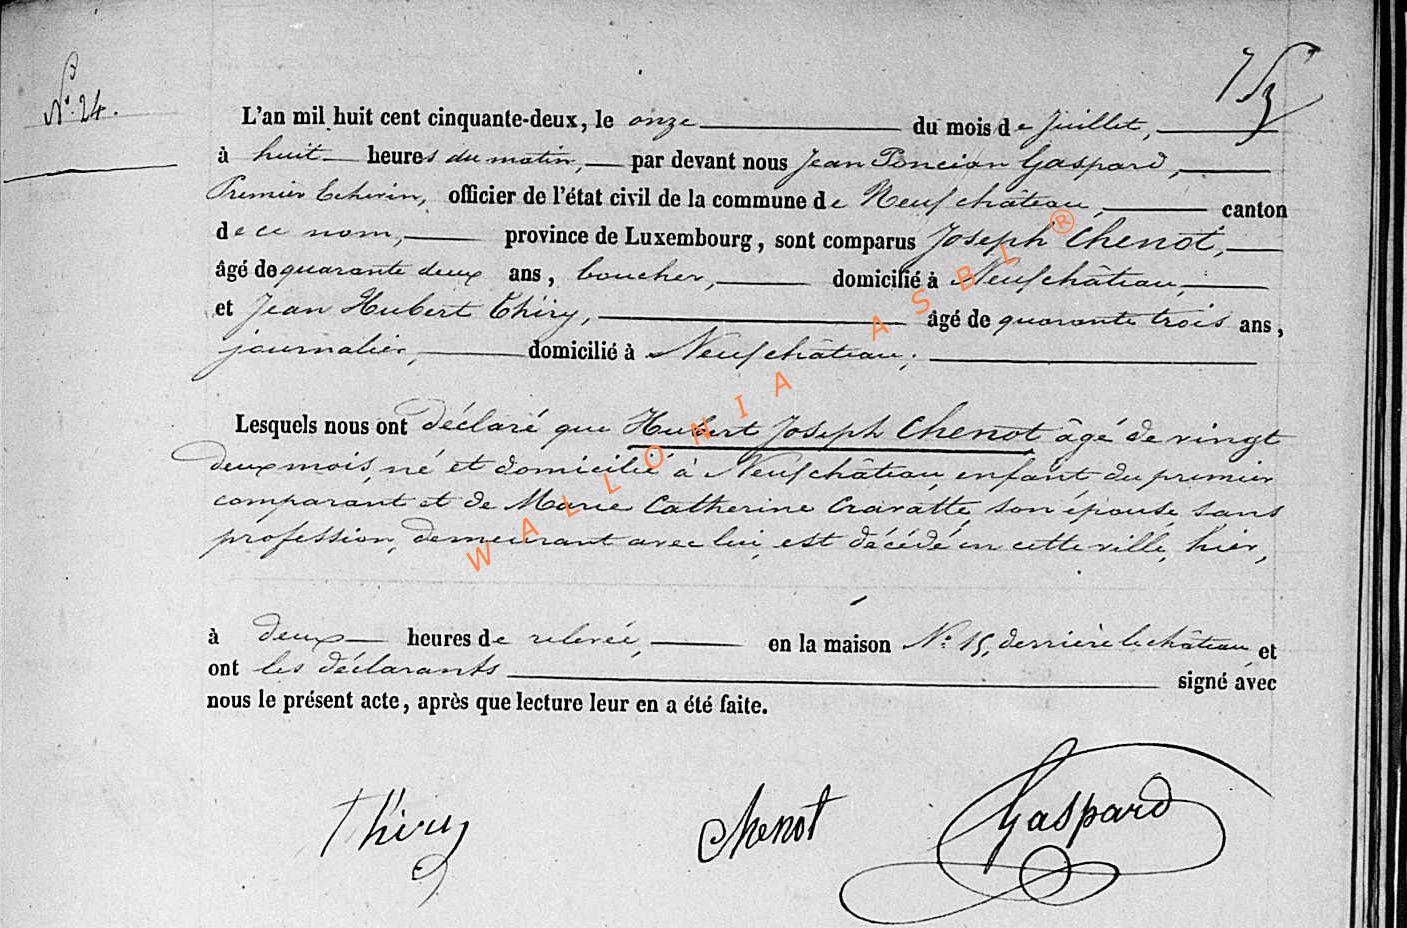 N.° 24.
L'an mil huit cent cinquante-deux, le onze du mois de Juillet,
à huit heures du matin, par devant nous Jean Poncian Gaspard,
Premier Echevin, officier de l'état civil de la commune de Neufchâteau, canton
de ce nom, province de Luxembourg, sont comparus Joseph Chenot,
âgé de quarante deux ans, boucher, domicilié à Neufchâteau,
et Jean Hubert Thiry, âgé de quarante trois ans,
journalier, domicilié à Neufchâteau;
Lesquels nous ont déclaré que Hubert Joseph Chenot âgé de vingt
deux mois, né et domicilié à Neufchâteau, enfant du premier
comparant et de Marie Catherine Cravatte, son épouse, sans
profession, demeurant avec lui, est décédé en cette ville, hier,
à deux heures de relevée, en la maison N.° 15, derrière le château, et
ont les déclarants signé avec
nous le présent acte, après que lecture leur en a été faite.
Thiry Chenot Gaspard
WALLONIA ASBL ®